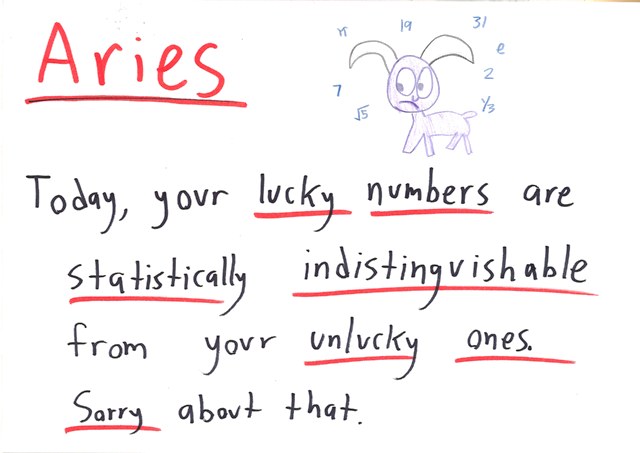 Aries
π 19 31
e
7 2
√5 1/3
Today, your lucky numbers are
statistically indistinguishable
from your unlucky ones.
Sorry about that.